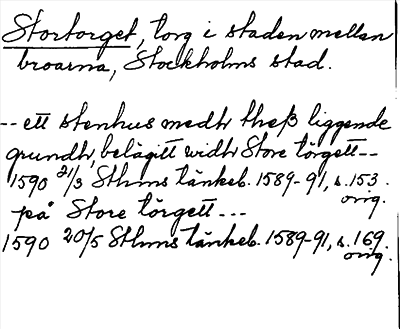 Stortorget, torg i staden mellan
broarna, Stockholms stad.
-- ett stenhus medh theß liggende
grundh, belägitt widh Store törgett --
1590 21/3 Sthms tänkeb. 1589-91, s. 153.
orig.
på Store törgett ---
1590 20/5 Sthms tänkeb. 1589-91, s. 169.
orig.